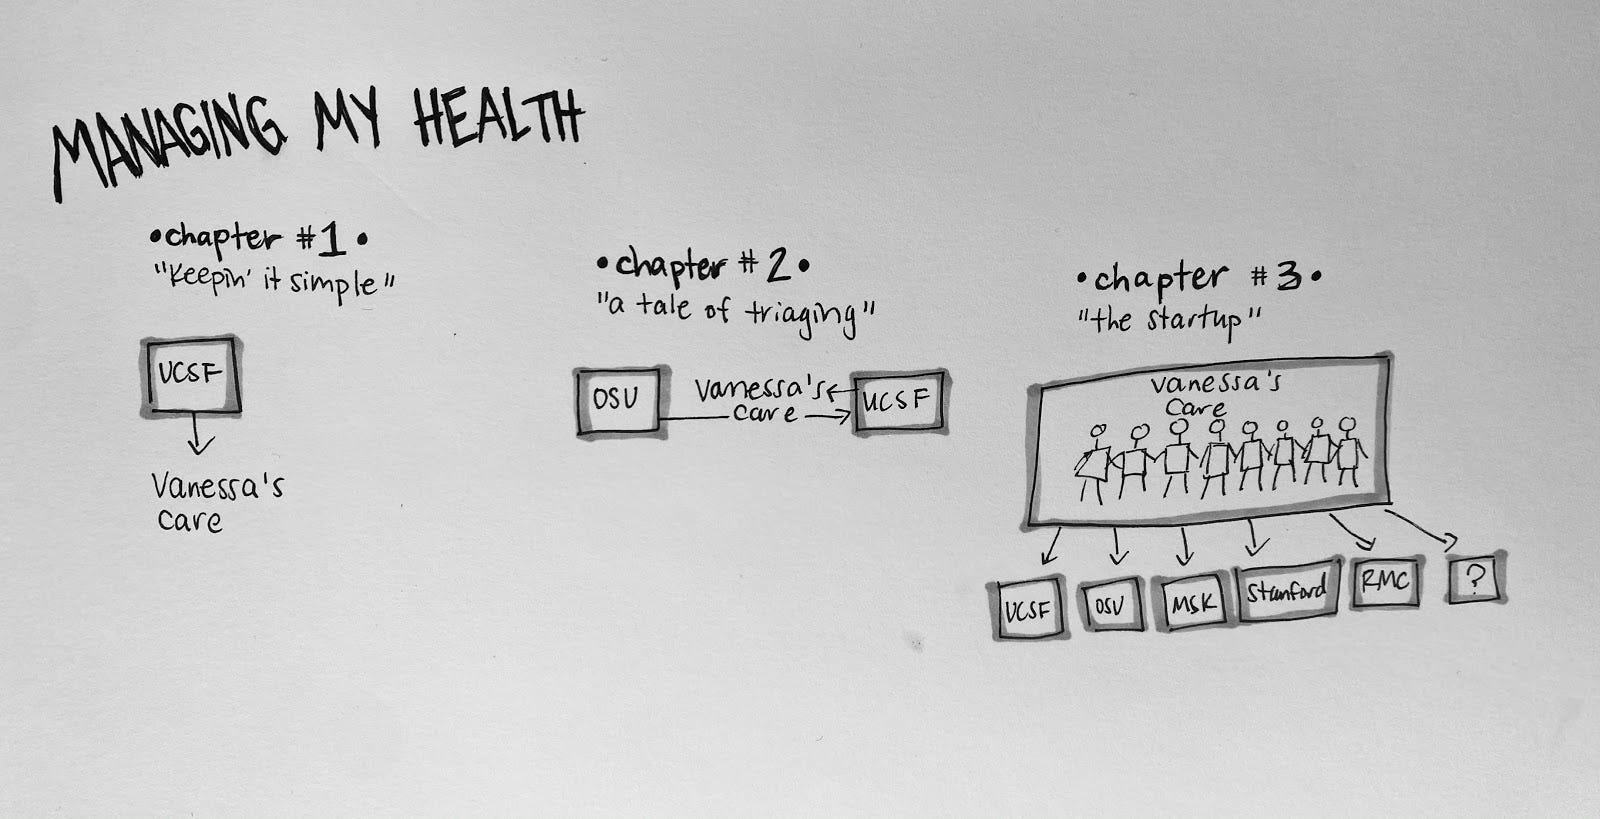 MANAGING MY HEALTH
•chapter #1•
"Keepin' it simple"
UCSF
Vanessa's
care
•chapter #2•
"a tale of triaging"
OSU
Vanessa's
care
UCSF
•chapter #3•
"the startup"
Vanessa's
Care
UCSF
OSU
MSK
Stanford
RMC
?